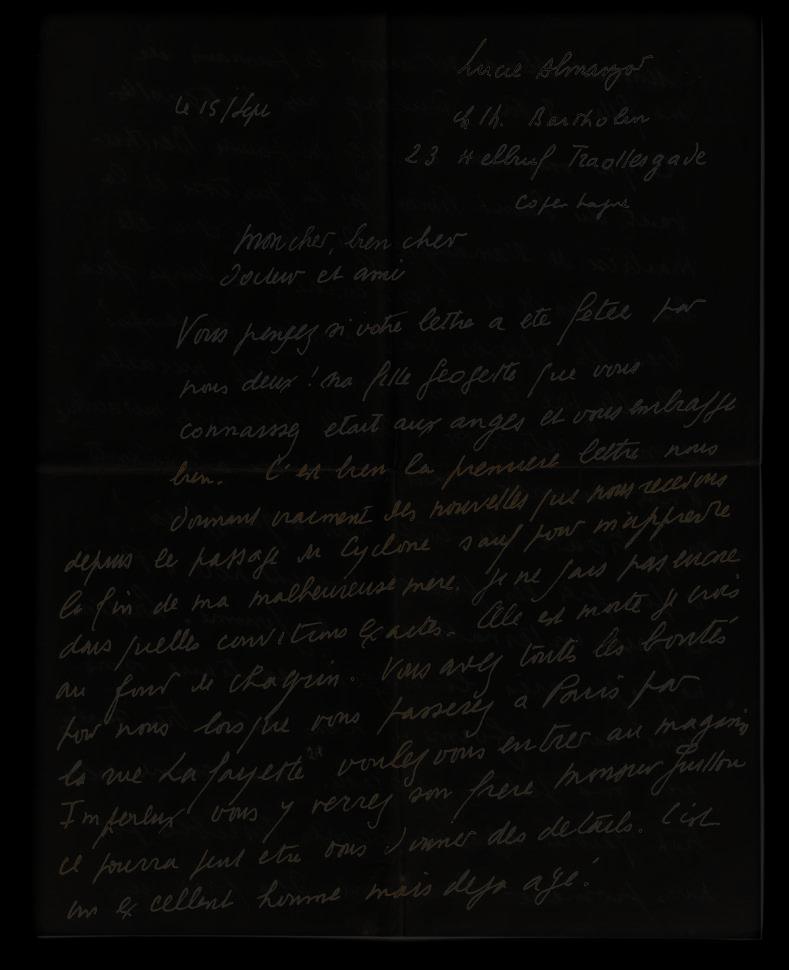 Lucie Almanzor
le 15/Sept
ch Th. Bartholin
23 Traollesgade
Copenhague
Mon cher, bien cher
Docteur et ami
Vous pensez si votre lettre a eté fetée par
nous deux! Ma fille que vous
connaissez etait aux anges et vous embrasse
bien. C'est bien la premiere lettre nous
donnant vraiment des nouvelles que nous recevons
depuis le passage du Cyclone sauf pour m'apprendre
la fin de ma malheureuse mere. Je ne sais pas encore
dans quelles conditions exactes. Elle est morte je crois
au fond de chagrin. Vous avez toutes les bontés
pour nous lorsque vous passerez a Paris par
la rue La fayette voulez vous entrer au magasin
vous y verrez son frere Monsieur Guillou
ce pourra peut etre vous donner des details. C'est
un excellent homme mais deja agé!